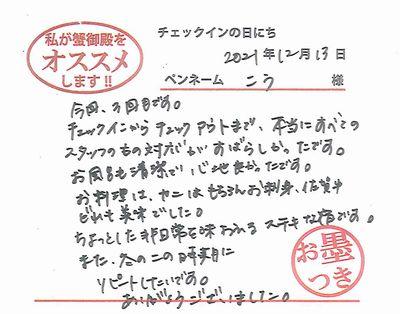 私が蟹御殿を
オススメ
します!!
チェックインの日にち
2021年12月13日
ペンネーム こう 様
今回、3回目です。
チェックインからチェックアウトまで、本当にすべての
スタッフのもの対応がすばらしかったです。
お風呂も清潔で心地良かったです。
お料理は、カニはもちろんお刺身、佐賀牛
どれも美味でした。
ちょっとした非日常を味わえるステキな宿です。
また、冬のこの時期に
リピートしたいです。
ありがとうございました。
お墨
つき